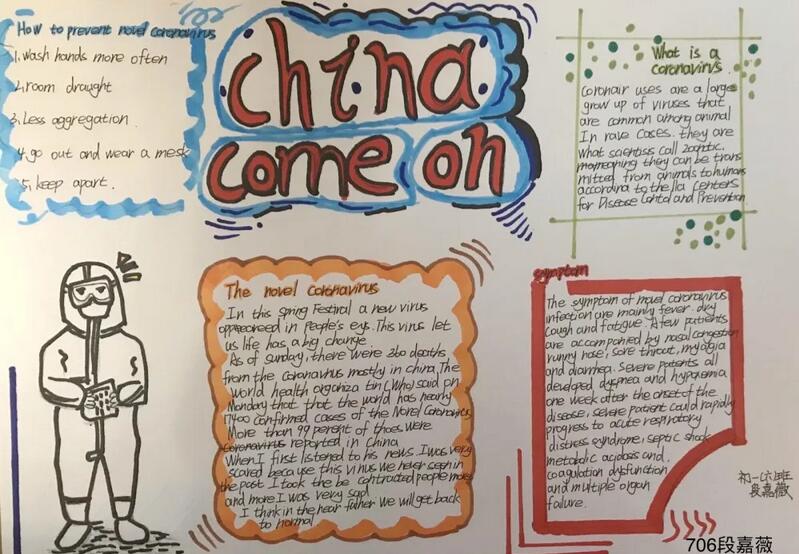 How to prevent novel coronavirus
1. wash hands more often
2. room draught
3. Less aggregation.
4. go out and wear a mesk
5. keep apart.
china
come on
What is a
coronavirus.
Coronair uses are a large
grow up of viruses that
are common among animal
In rave cases. they are
what scientiss call zoontic.
they can be trans
mitted from animals to humans
according to the centers
for Disease and Prevention
The novel coronavirus
In this spring Festival a new virus
in People's eys. This virus let
us life has a big change.
As of sunday, there were 360 deaths
from the coronavirus mostly in china. The
world health organiza tin (Who) said on
Monday that that the world has nearly
17400 confirmed cases of the Novel Coronavirus
More than 99 percent of thoes were
coronavirus reported in China
When I first listened to his news. I was very
scared because this virus we never seen in
the post. I took the be contracted people more
and more. I was very sad
I think in the near futher we will get back
to normal
symptom
The symptom of novel coronavirus
infection are mainly fever. dry
cough and fatigue. A few patients
are accompanied by nasal congestion
runny nose, sore throat, myalgia
and diarrhea. Severe patients all
developed dyspnea and hypoxemia
one week after the onset of the
disease, severe patient could rapidly
progress to acute respiratory
distress syndrome, septic shock
metabolic acidosis and.
coagulation dysfunction
and multiple organ
failure.
初一六班
段嘉薇
706段嘉薇